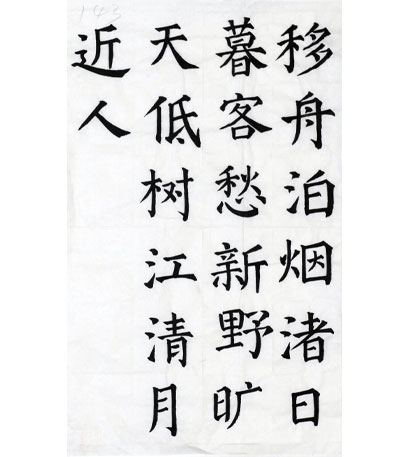 移舟泊烟渚日
暮客愁新野旷
天低树江清月
近人
143